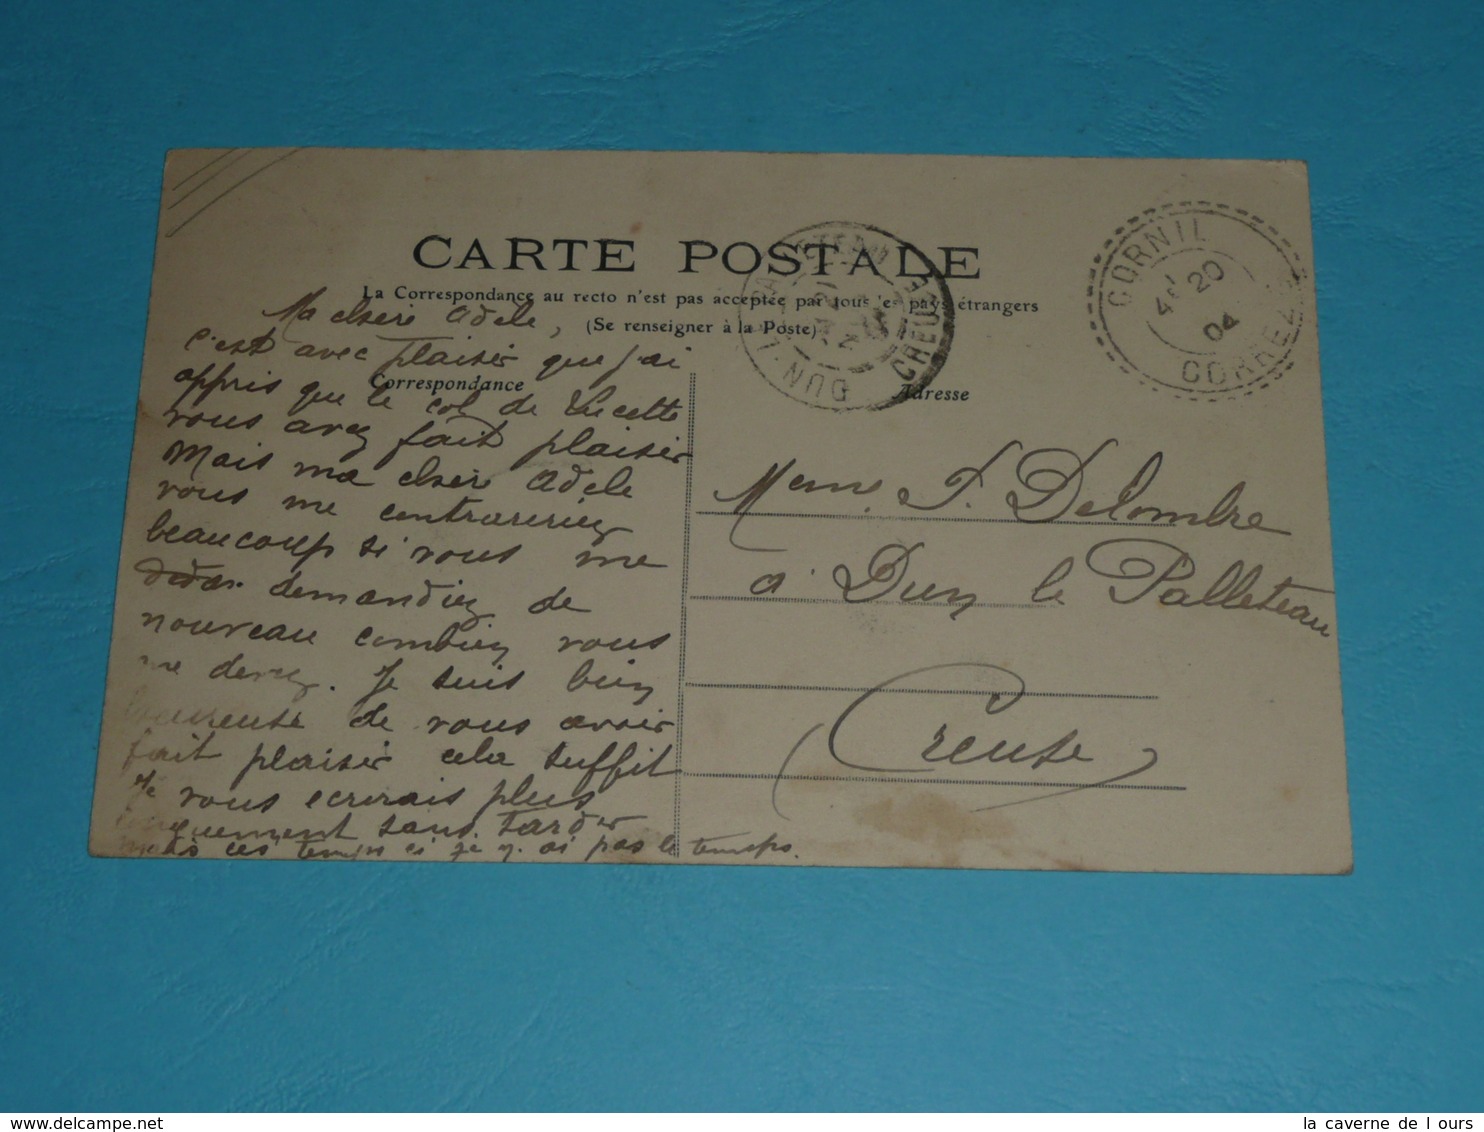 CARTE POSTALE
La Correspondance au recto n'est pas acceptée par tous les pays étrangers
(Se renseigner à la Poste)
Correspondance
Ma chère Adèle,
C'est avec plaisir que j'ai
appris que le col de Lucette
vous avez fait plaisir
Mais ma chère Adèle
vous me contrarieriez
beaucoup si vous me
demandiez de
nouveau combien vous
me devez. Je suis bien
heureuse de vous avoir
fait plaisir cela suffit
Je vous ecrirais plus
longuement sans tarder
mais ces temps ci je n'ai pas le temps.
Adresse
Mme. Delombre
à Dun le Palleteau
Creuse
DUN-LE-PALLETEAU
CREUSE
CORNIL
20
04
CORREZE
delcampe.net
la caverne de l ours